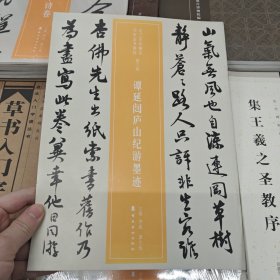 山氣無風也自涼連岡草樹
靜蒼〻路人只許非生客張
谭延闿庐山纪游墨迹
杏佛先生出紙索書舊作乃
為盡寫此卷冀幸他日同遊
集王羲之圣教序
草书入门
诗卷